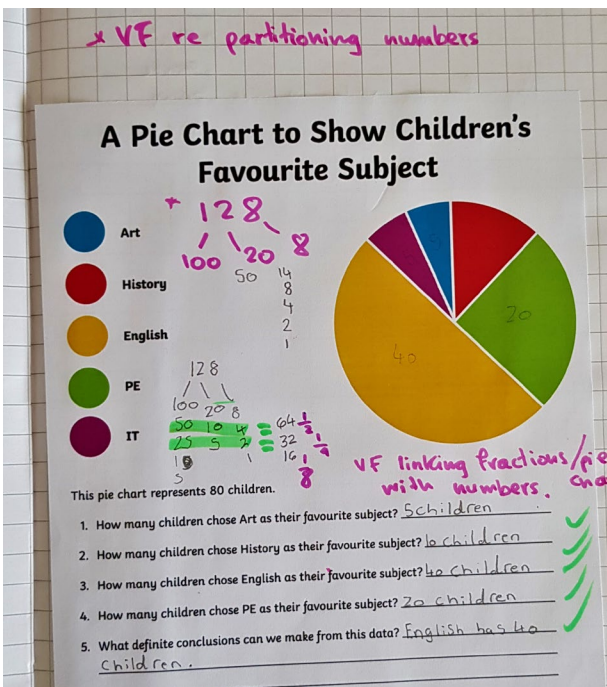 * VF re partitioning numbers
A Pie Chart to Show Children's
Favourite Subject
* 128
100 20 8
50 14
8
4
2
1
Art
History
English
PE
IT
5
20
40
128
100 20 8
50 10 4 = 64 1/2
25 5 2 = 32 1/4
1 16 1/8
5
VF linking fractions/pie
with numbers.
This pie chart represents 80 children.
1. How many children chose Art as their favourite subject? 5 children
2. How many children chose History as their favourite subject? 10 children
3. How many children chose English as their favourite subject? 40 children
4. How many children chose PE as their favourite subject? 20 children
5. What definite conclusions can we make from this data? English has 40
children.